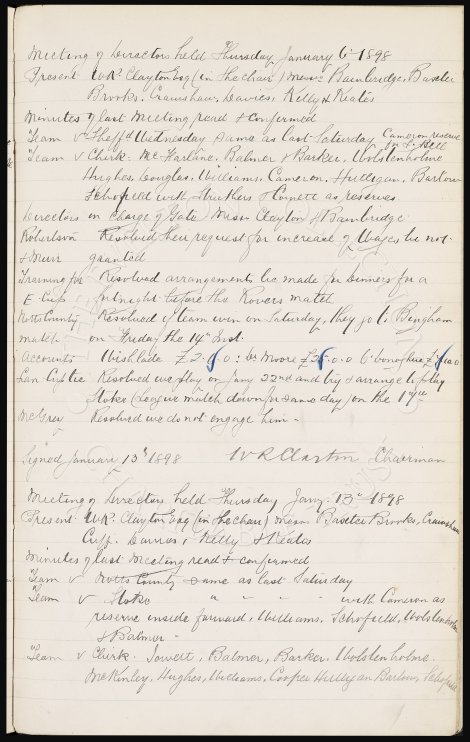 Meeting of Directors held Thursday January 6th 1898
Present W.R. Clayton Esq (in the chair) Messrs Bainbridge, Baxter
Brooks, Crawshaw, Davies, Kelly & Keates
Minutes of last Meeting read & confirmed
Team v Sheffd Wednesday same as last Saturday Cameron reserve
for Bell
Team v Chirk. McFarlane, Balmer & Barker, Wolstenholme
Hughes, Douglas, Williams, Cameron, Hulligan, Barlow
Schofield with Struthers & as reserves
Directors in Charge of Gate) Messrs Clayton & Bainbridge
Robertson Resolved their request for increase of Wages be not
& Muir granted
Training for Resolved arrangements be made for dinners for a
E. Cup fortnight before the Rovers match
Notts County Resolved if team win on Saturday, they go to Bingham
match on Friday the 14th Inst.
Accounts Wishlade £2. 0: Dr Moore £ .0.0 £
Lan Cup tie Resolved we play on Jany 22nd and try & arrange to play
Stoke (League match down for same day) on the
Resolved we do not engage him —
Signed January 13th 1898 W R Clayton Chairman
Meeting of Directors held Thursday Jany. 13th 1898
Present W.R. Clayton Esq (in the chair) Messrs Baxter Brooks, Crawshaw
Cuff. Davies Kelly & Keates
Minutes of last Meeting read & confirmed
Team v Notts County same as last Saturday
Team v Stoke " " " " with Cameron as
reserve inside forward, Williams, Schofield, Wolstenholme
& Balmer
Team v Chirk. Jowett, Balmer, Barker, Wolstenholme
McKinley, Hughes, Williams, Cooper Hulligan Barlow, Schofield